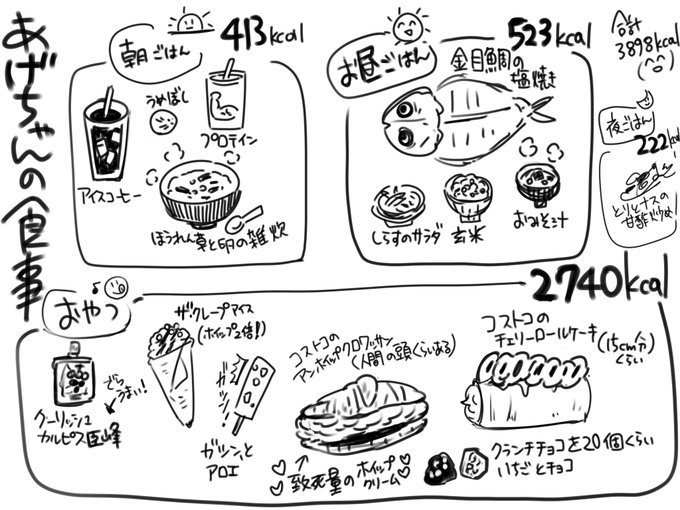 あげちゃんの食事
朝ごはん
413kcal
アイスコーヒー
うめぼし
プロテイン
ほうれん草と卵の雑炊
お昼ごはん
523kcal
金目鯛の
塩焼き
しらすのサラダ
玄米
おみそ汁
合計
3898kcal
夜ごはん
222kcal
とりとナスの
甘酢炒め
おやつ
2740kcal
クーリッシュ
カルピス巨峰
でら
うまい!
ザクレープアイス
(ホイップ2倍!!)
ガツン!
ガツンと
アロエ
コストコの
アンホイップクロワッサン
(人間の頭くらいある)
致死量のホイップ
クリーム
コストコの
チェリーロールケーキ
(15cm分)
くらい
クランチチョコを20個くらい
いちごとチョコ